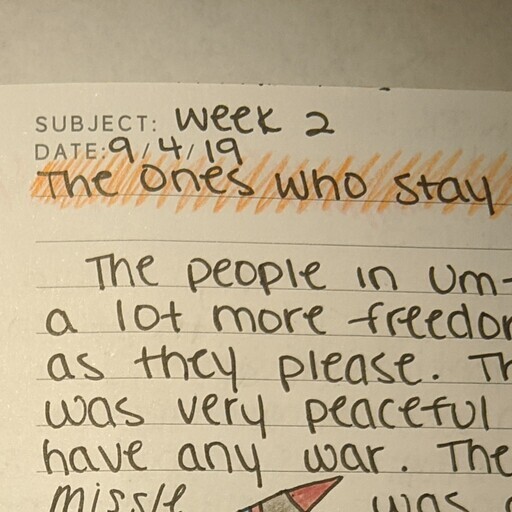 SUBJECT: Week 2
DATE: 9/4/19
The Ones who stay
The people in Um-
a lot more freedom
as they please. Th
was very peaceful
have any war. The
missle was